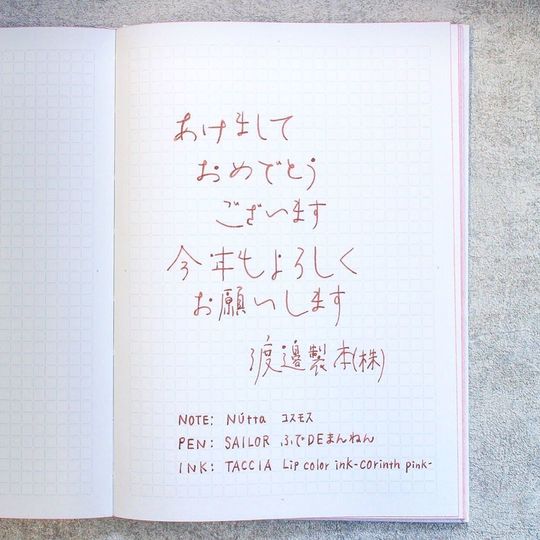 あけまして
おめでとう
ございます
今年もよろしく
お願いします
渡邉製本(株)
NOTE: Nútta コスモス
PEN: SAILOR ふでDEまんねん
INK: TACCIA Lip color ink-corinth pink-